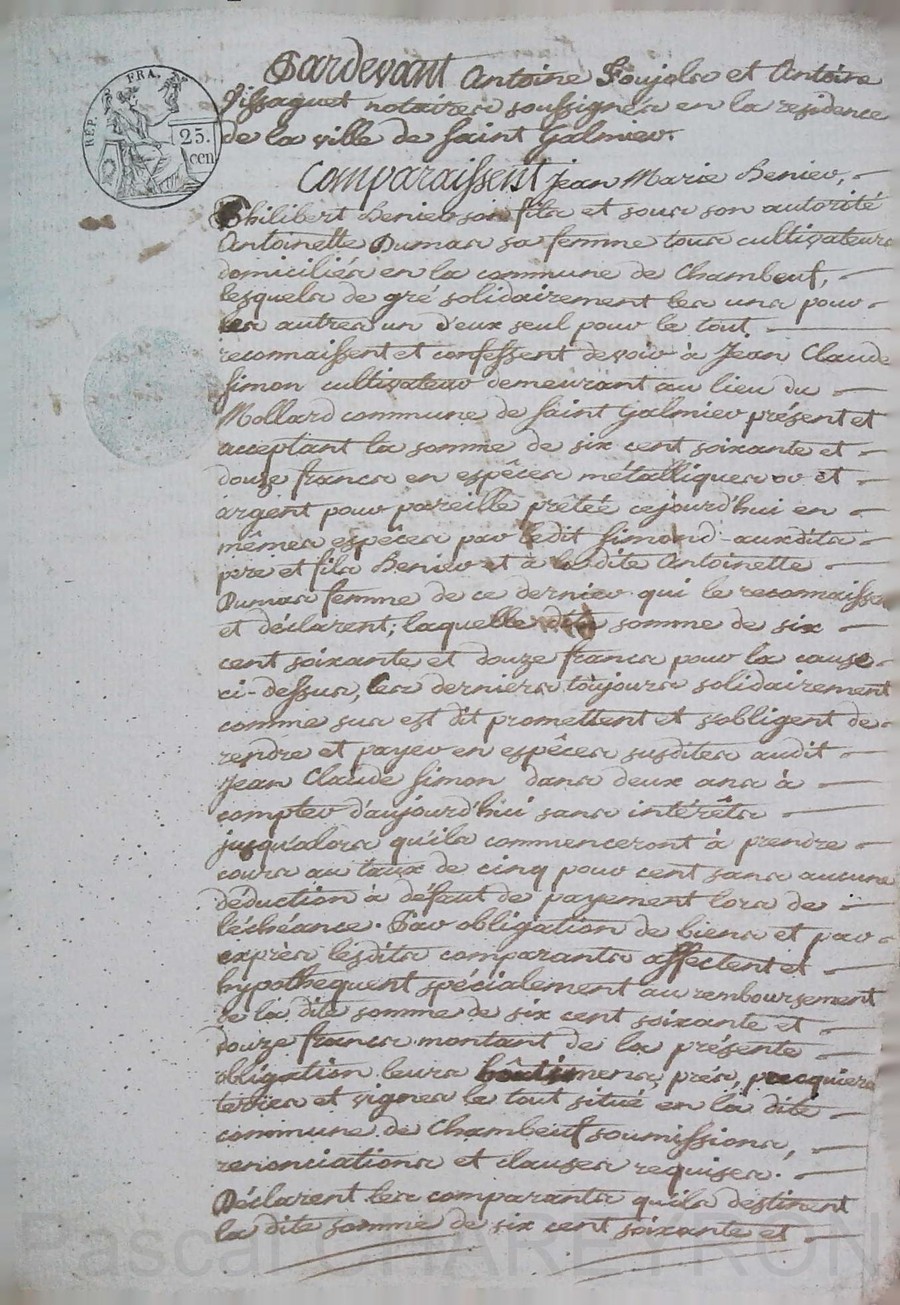 RÉP. FRA.
25.
cen
Pardevant Antoine Poujola et Antoine
Pissaquet notaires soussignés en la residence
de la ville de Saint Galmier.
Comparaissent Jean Marie Benier,
Philibert Benier son fils et sous son autorité
Antoinette Dumas sa femme tous cultivateurs
domiciliés en la commune de Chambeuf,
lesquels de gré solidairement les uns pour
les autres un d'eux seul pour le tout
reconnaissent et confessent devoir à Jean Claude
Simon cultivateur demeurant au lieu du
Mollard commune de Saint Galmier présent et
acceptant la somme de six cent soixante et
douze francs en espêces métalliques or et
argent pour pareille prêtée cejourd'hui en
mêmes espêces par ledit Simond auxdits
pere et fils Benier et à ladite Antoinette
Dumas femme de ce dernier qui le reconnaissent
et déclarent; laquelle dite somme de six
cent soixante et douze francs pour la cause
ci-dessus, les derniers toujours solidairement
comme sus est dit promettent et sobligent de
rendre et payer en espêces susdites audit
Jean Claude Simon dans deux ans à
compter d'aujourd'hui sans intérêts
jusqu'alors qu'ils commenceront à prendre
cours au taux de cinq pour cent sans aucune
déduction à défaut de payement lors de
l'échéance. Par obligation de biens et par
exprès lesdits comparants affectent et
hypothequent spécialement au remboursement
de la dite somme de six cent soixante et
douze francs montant de la présente
obligation leurs bâtiments, prés, pacquiers
terres et vignes le tout situé en la dite
commune de Chambeuf soumissions,
renonciations et clauses requises.
Déclarent les comparants qu'ils destinent
la dite somme de six cent soixante et
Pascal CHAREYRON